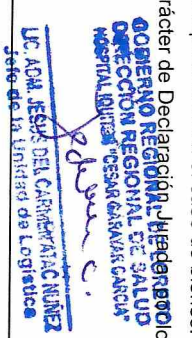 rácter de Declaración Jurada
GOBIERNO REGIONAL DE LORETO
DIRECCIÓN REGIONAL DE SALUD
HOSPITAL IQUITOS "CESAR GARAYAR GARCIA"
LIC. ADM. JESUS DEL CARMEN YATAC NUÑEZ
Jefe de la Unidad de Logística